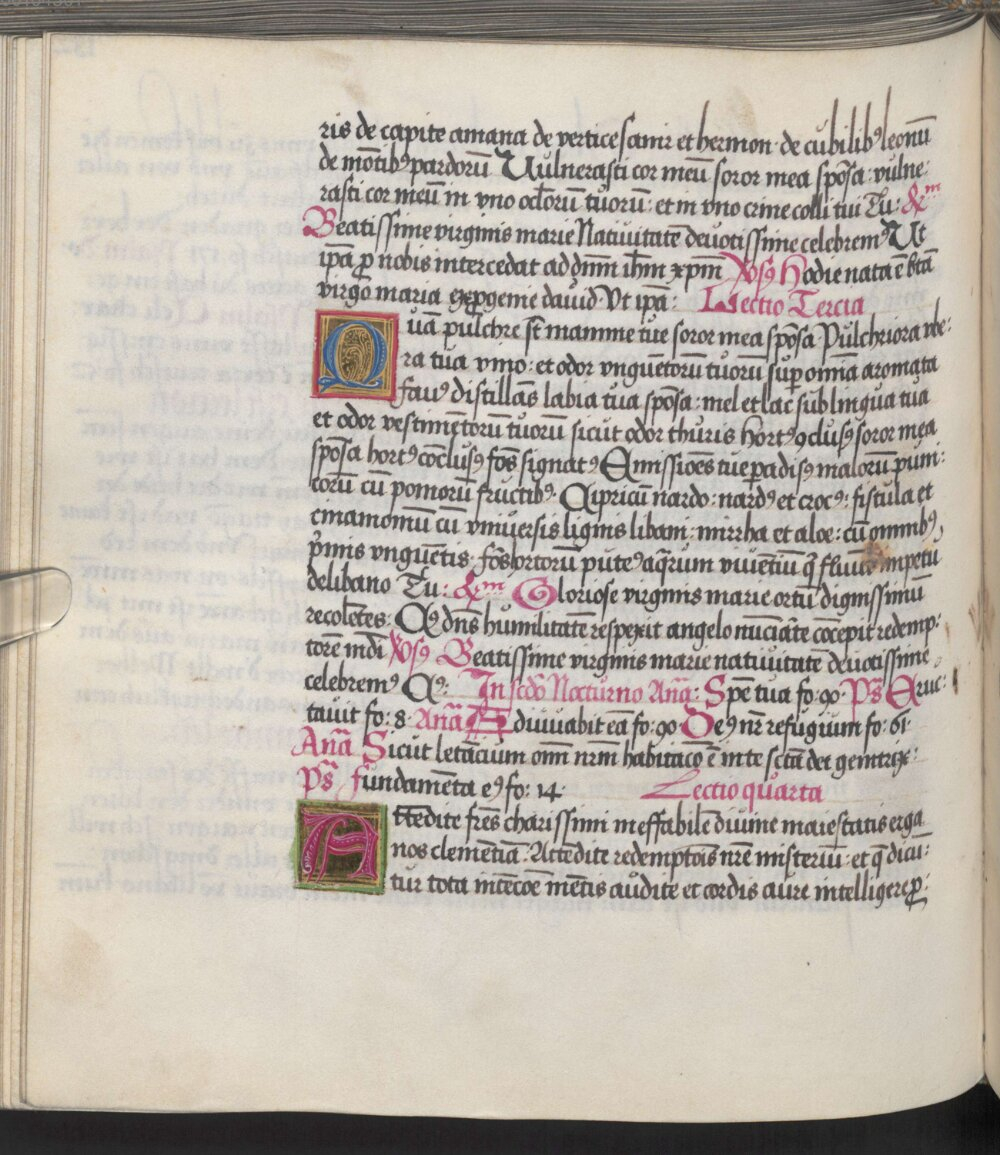 ris de capite amana de vertice sanir et hermon· de cubilibꝯ leonū
de mōtibꝯ pardorū Uulnerasti cor meū soror mea spōsa: vulne:
rasti cor meū in vno oclorū tuorū: et in vno crine colli tui Tu: &m
Beatissime virginis marie Natiuitatē deuotissime celebremꝯ Ut
ipā ꝓ nobis intercedat ad dnm ihm xpm Vꝰsꝯ Hodie nata ē btā
virgo maria ex ꝓgenie dauid Vt ipā: Lectio Tercia
Quā pulchre st mamme tue soror mea spōsa Pulchriora vbe:
ra tua vino: et odor vnguētorū tuorū suꝑ omīa aromata
fauꝯ distillās labia tua spōsa: mel et lac sub lingua tua
et odor vestimētorū tuorū sicut odor thuris hortꝯ ꝯclusꝯ soror mea
spōsa hortꝯ cōclusꝯ fōs signatꝯ Emissiōes tue paradisꝯ malorū puni:
corū cū pomorū fructibꝯ· Cipricū nardo: nardꝯ et crocꝯ: fistula et
cinamomū cū vniuersis lignis libani: mirrha et aloe: cū omnibꝯ
p̄mis vnguētis· fōs hortorū puteꝯ aqrum viuētiū q̄ fluūt impetu
de libano Tu: &m Gloriose virginis marie ortū dignissimū
recolētes: Qꝯ dn̄s humilitatē respexit angelo nūciāte cōcepit redemp:
torē mdi Vꝰsꝯ Beatissime virginis marie natiuitatē deuotissime
celebremꝯ Qꝯ: In scdo Nocturno Anā: Spe tua fo: 90· Ps Eruc:
tauit fo: 8· Anā Adiuuabit eā fo: 90 Deꝯ nr̄ refugium fo: 61
Anā Sicut letāciū om̄ nrm habitaco ē in te sctā dei genitrix·
Ps Fundamēta eꝯ fo: 14· Lectio quarta
Attēdite frēs charissimi ineffabilē diuine maiestatis erga
nos clemētiā· Attēdite redemptois nrē misteriū: et q̄ dicū:
tur tota intēcoe mētis audite et cordis aure intelligere ꝓ: